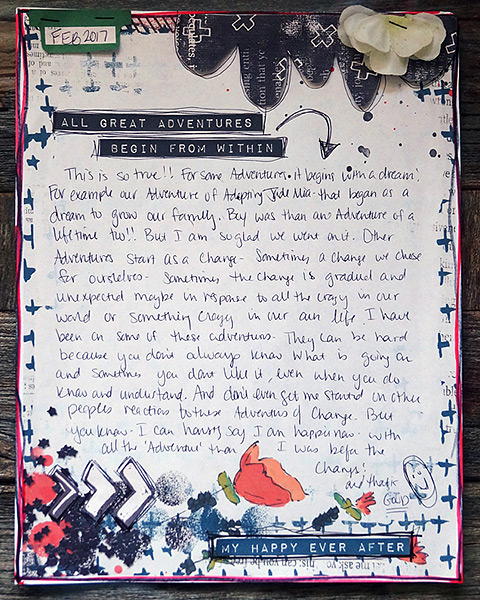 FEB 2017
ALL GREAT ADVENTURES
BEGIN FROM WITHIN
This is so true!! For some Adventures it begins with a dream!
For example our Adventure of Adopting Jade Mia - that began as a
dream to grow our family. Boy was than an Adventure of a
lifetime too!! But I am so glad we went on it. Other
Adventures start as a Change - Sometimes a Change we chose
for ourselves - Sometimes the Change is gradual and
unexpected maybe in response to all the crazy in our
world or something crazy in our own life. I have
been on some of these adventures. They can be hard
because you don't always know what is going on
and sometimes you don't like it, even when you do
know and understand. And don't even get me started on other
peoples reaction to these Adventures of Change. But
you know - I can honestly say I am happier now - with
all the 'Adventure' than I was before the
Change!
and that's
GOOD
MY HAPPY EVER AFTER